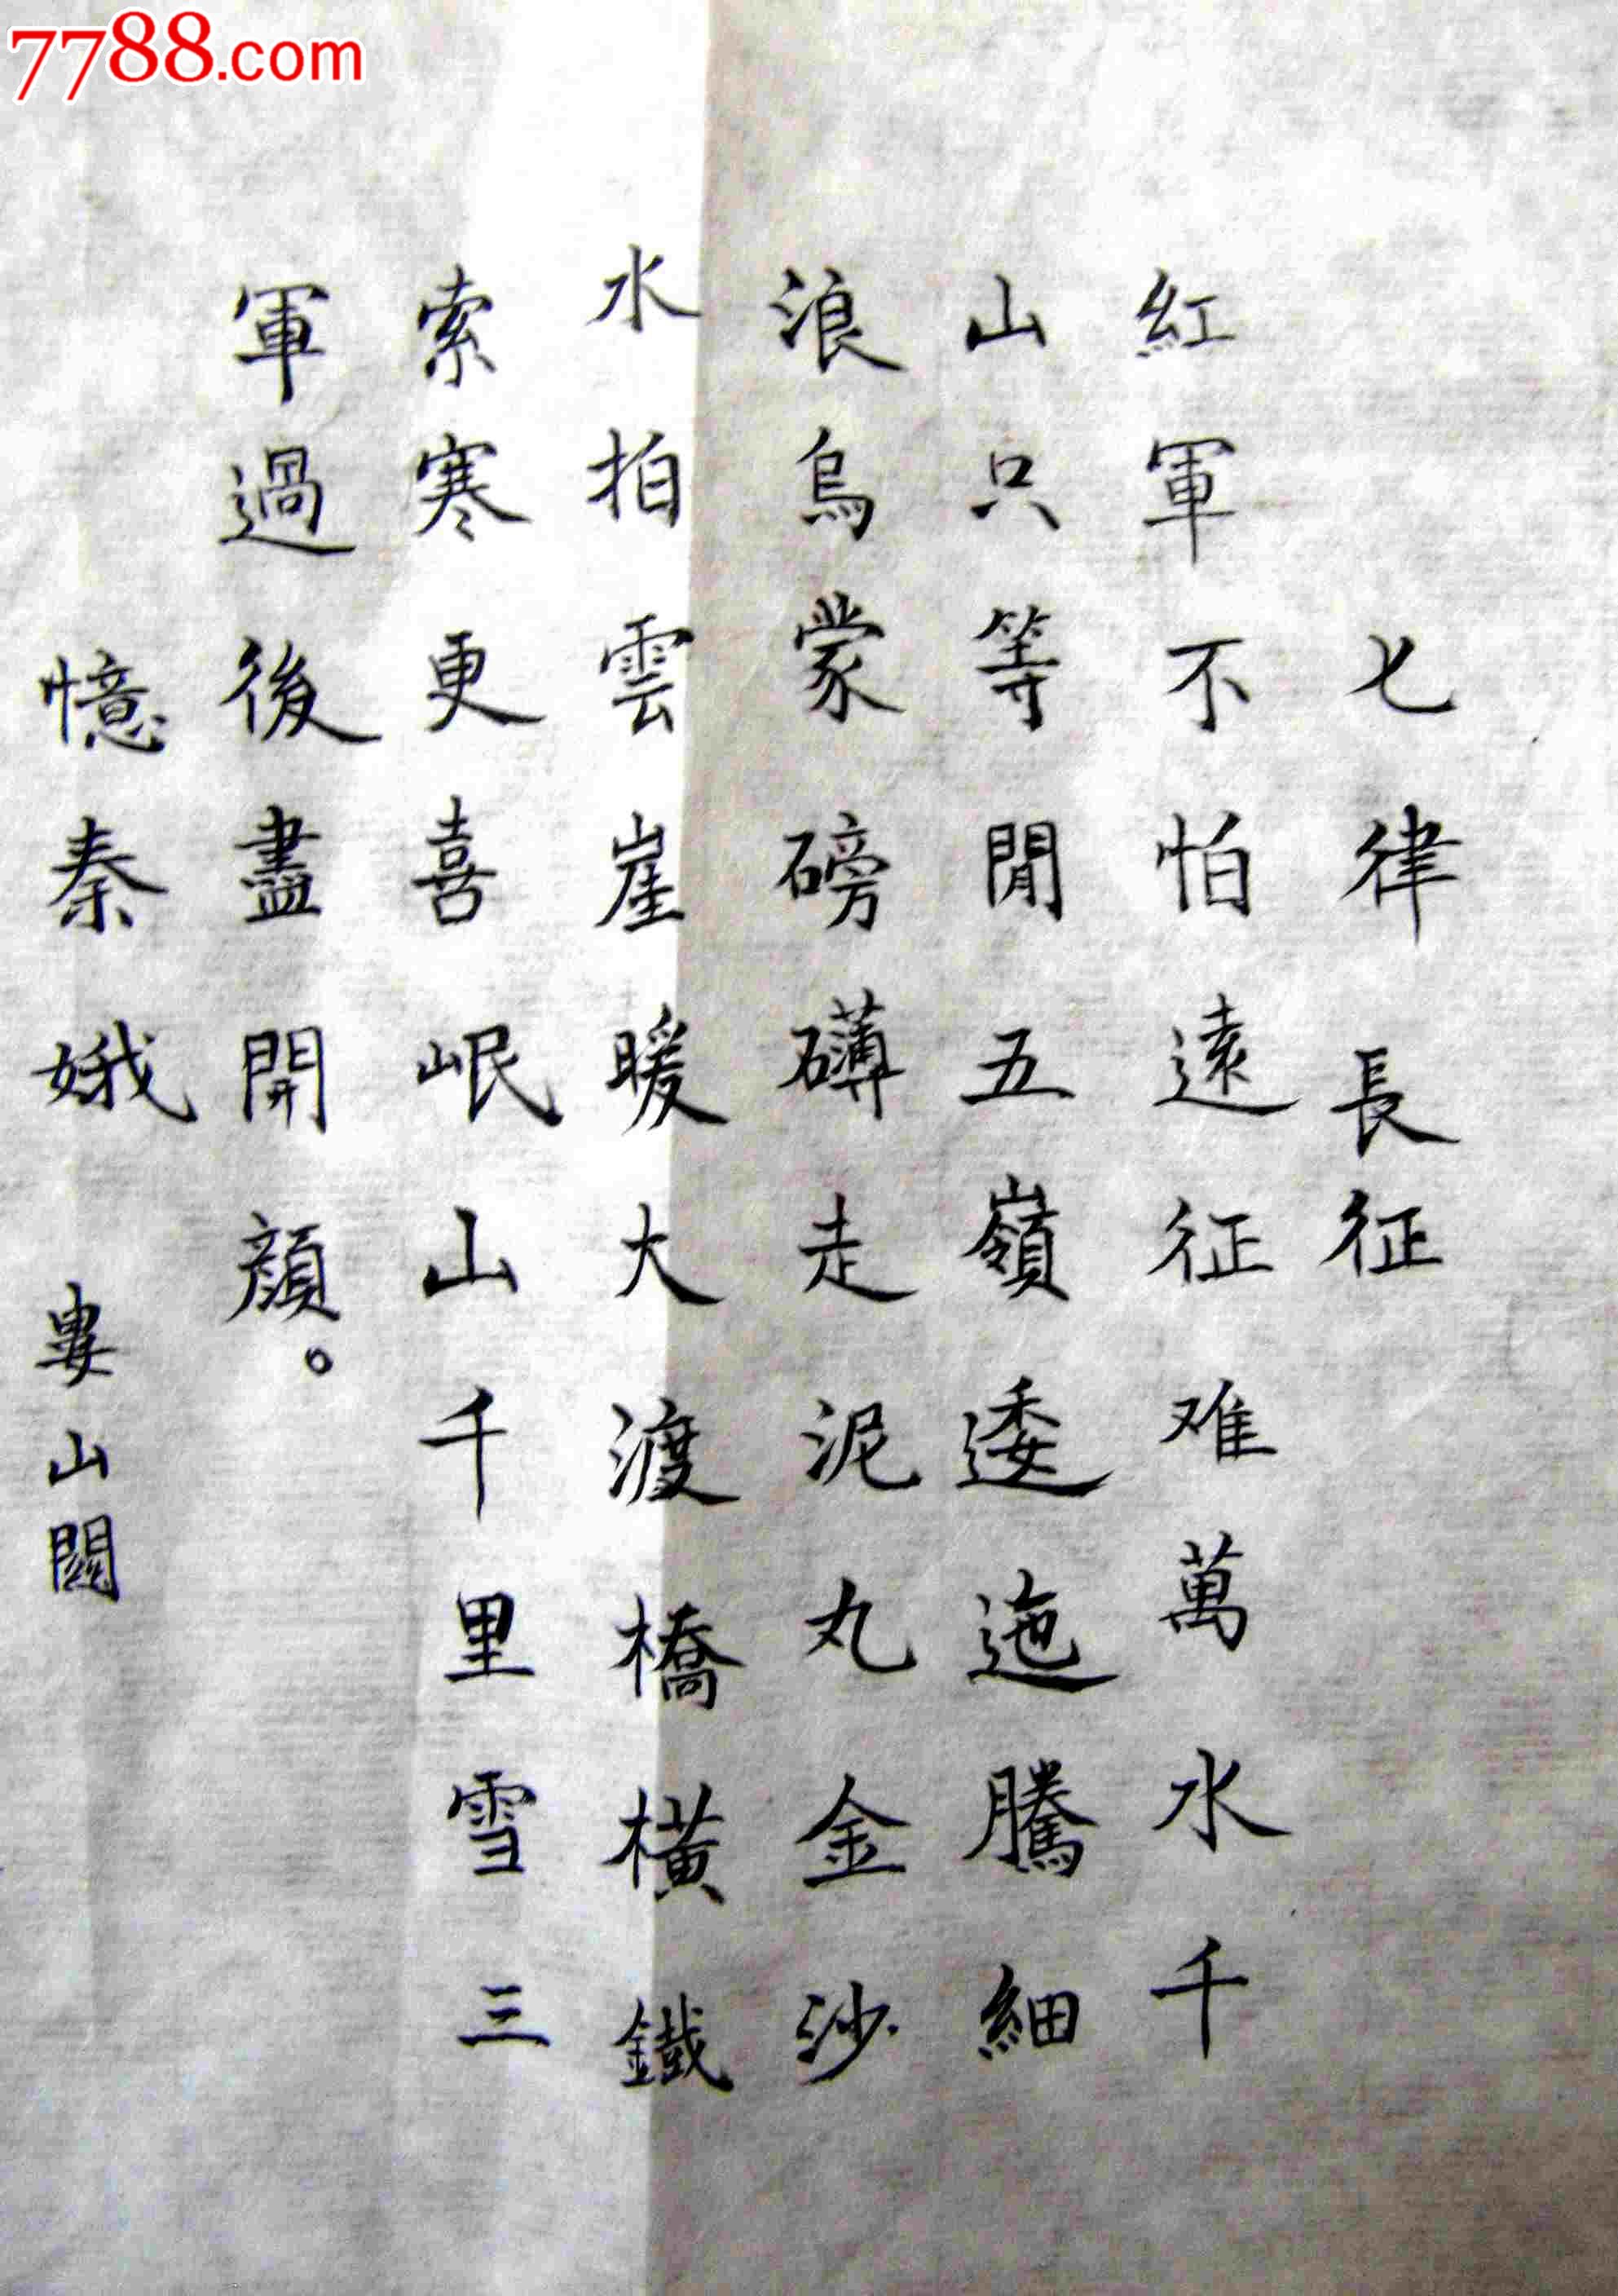 7788.com
七律 長征
紅軍不怕遠征难萬水千
山只等閒五嶺逶迤騰細
浪烏蒙磅礴走泥丸金沙
水拍雲崖暖大渡橋橫鐵
索寒更喜岷山千里雪三
軍過後盡開顏。
憶秦娥 婁山關